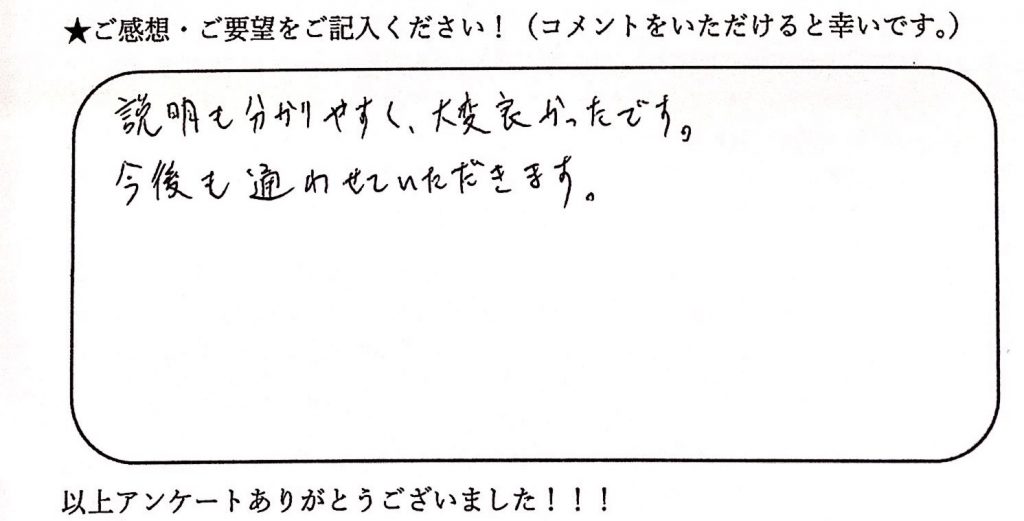 ★ご感想・ご要望をご記入ください！（コメントをいただけると幸いです。）
説明も分かりやすく、大変良かったです。
今後も通わせていただきます。
以上アンケートありがとうございました！！！